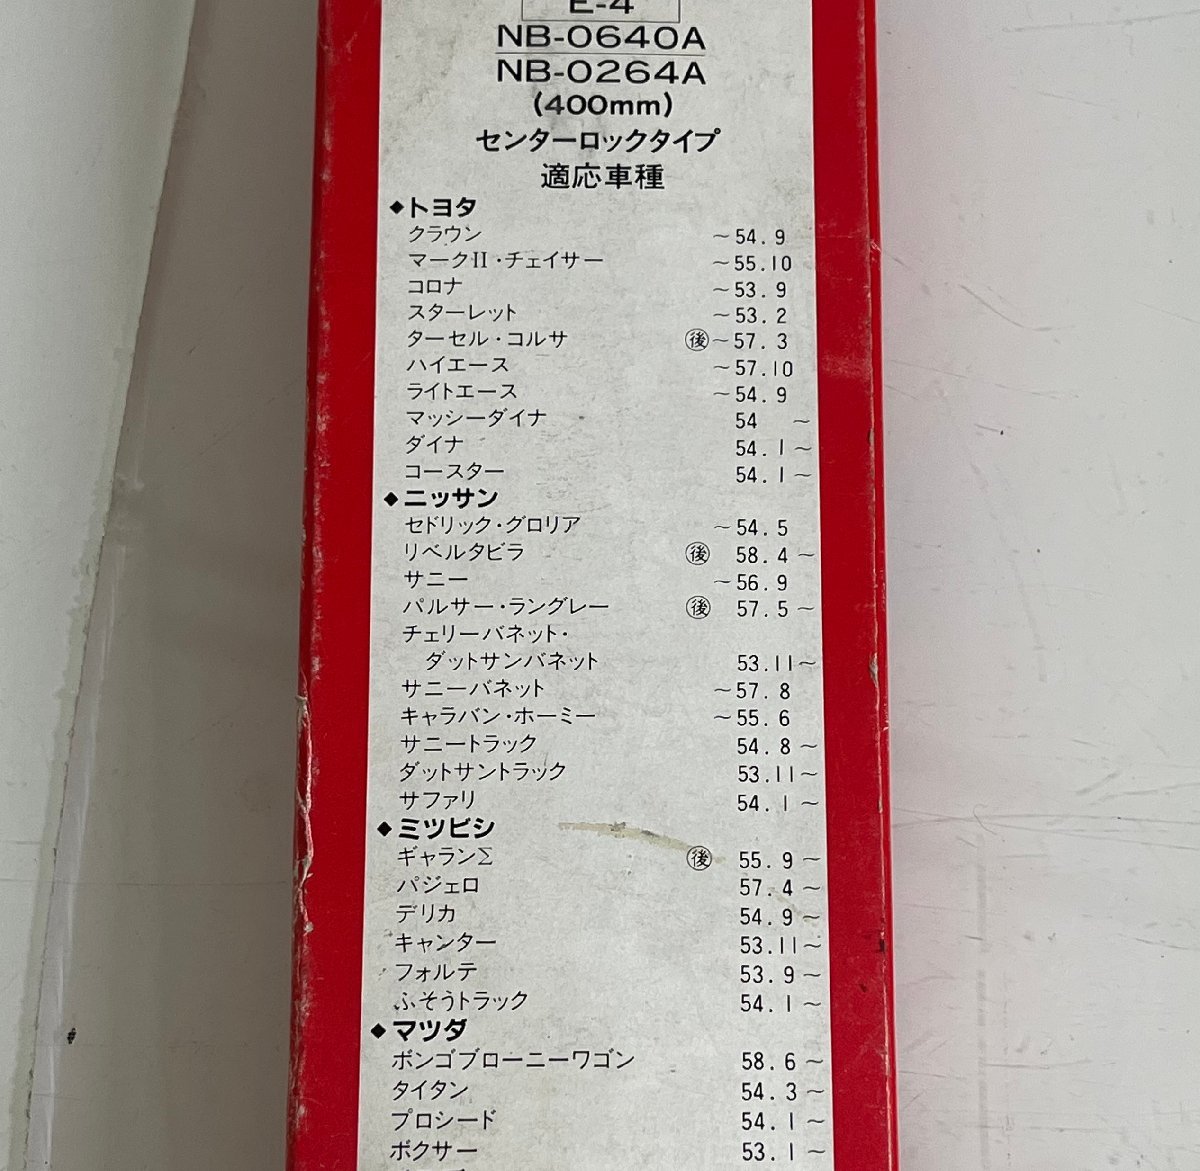 E-4
NB-0640A
NB-0264A
(400mm)
センターロックタイプ
適応車種
◆トヨタ
クラウン ～54.9
マークII・チェイサー ～55.10
コロナ ～53.9
スターレット ～53.2
ターセル・コルサ ㊝～57.3
ハイエース ～57.10
ライトエース ～54.9
マッシーダイナ 54 ～
ダイナ 54.1～
コースター 54.1～
◆ニッサン
セドリック・グロリア ～54.5
リベルタビラ 後 58.4～
サニー ～56.9
パルサー・ラングレー 後 57.5～
チェリーバネット・
ダットサンバネット 53.11～
サニーバネット ～57.8
キャラバン・ホーミー ～55.6
サニートラック 54.8～
ダットサントラック 53.11～
サファリ 54.1～
◆ミツビシ
ギャランΣ 後 55.9～
パジェロ 57.4～
デリカ 54.9～
キャンター 53.11～
フォルテ 53.9～
ふそうトラック 54.1～
◆マツダ
ボンゴブローニーワゴン 58.6～
タイタン 54.3～
プロシード 54.1～
ボクサー 53.1～